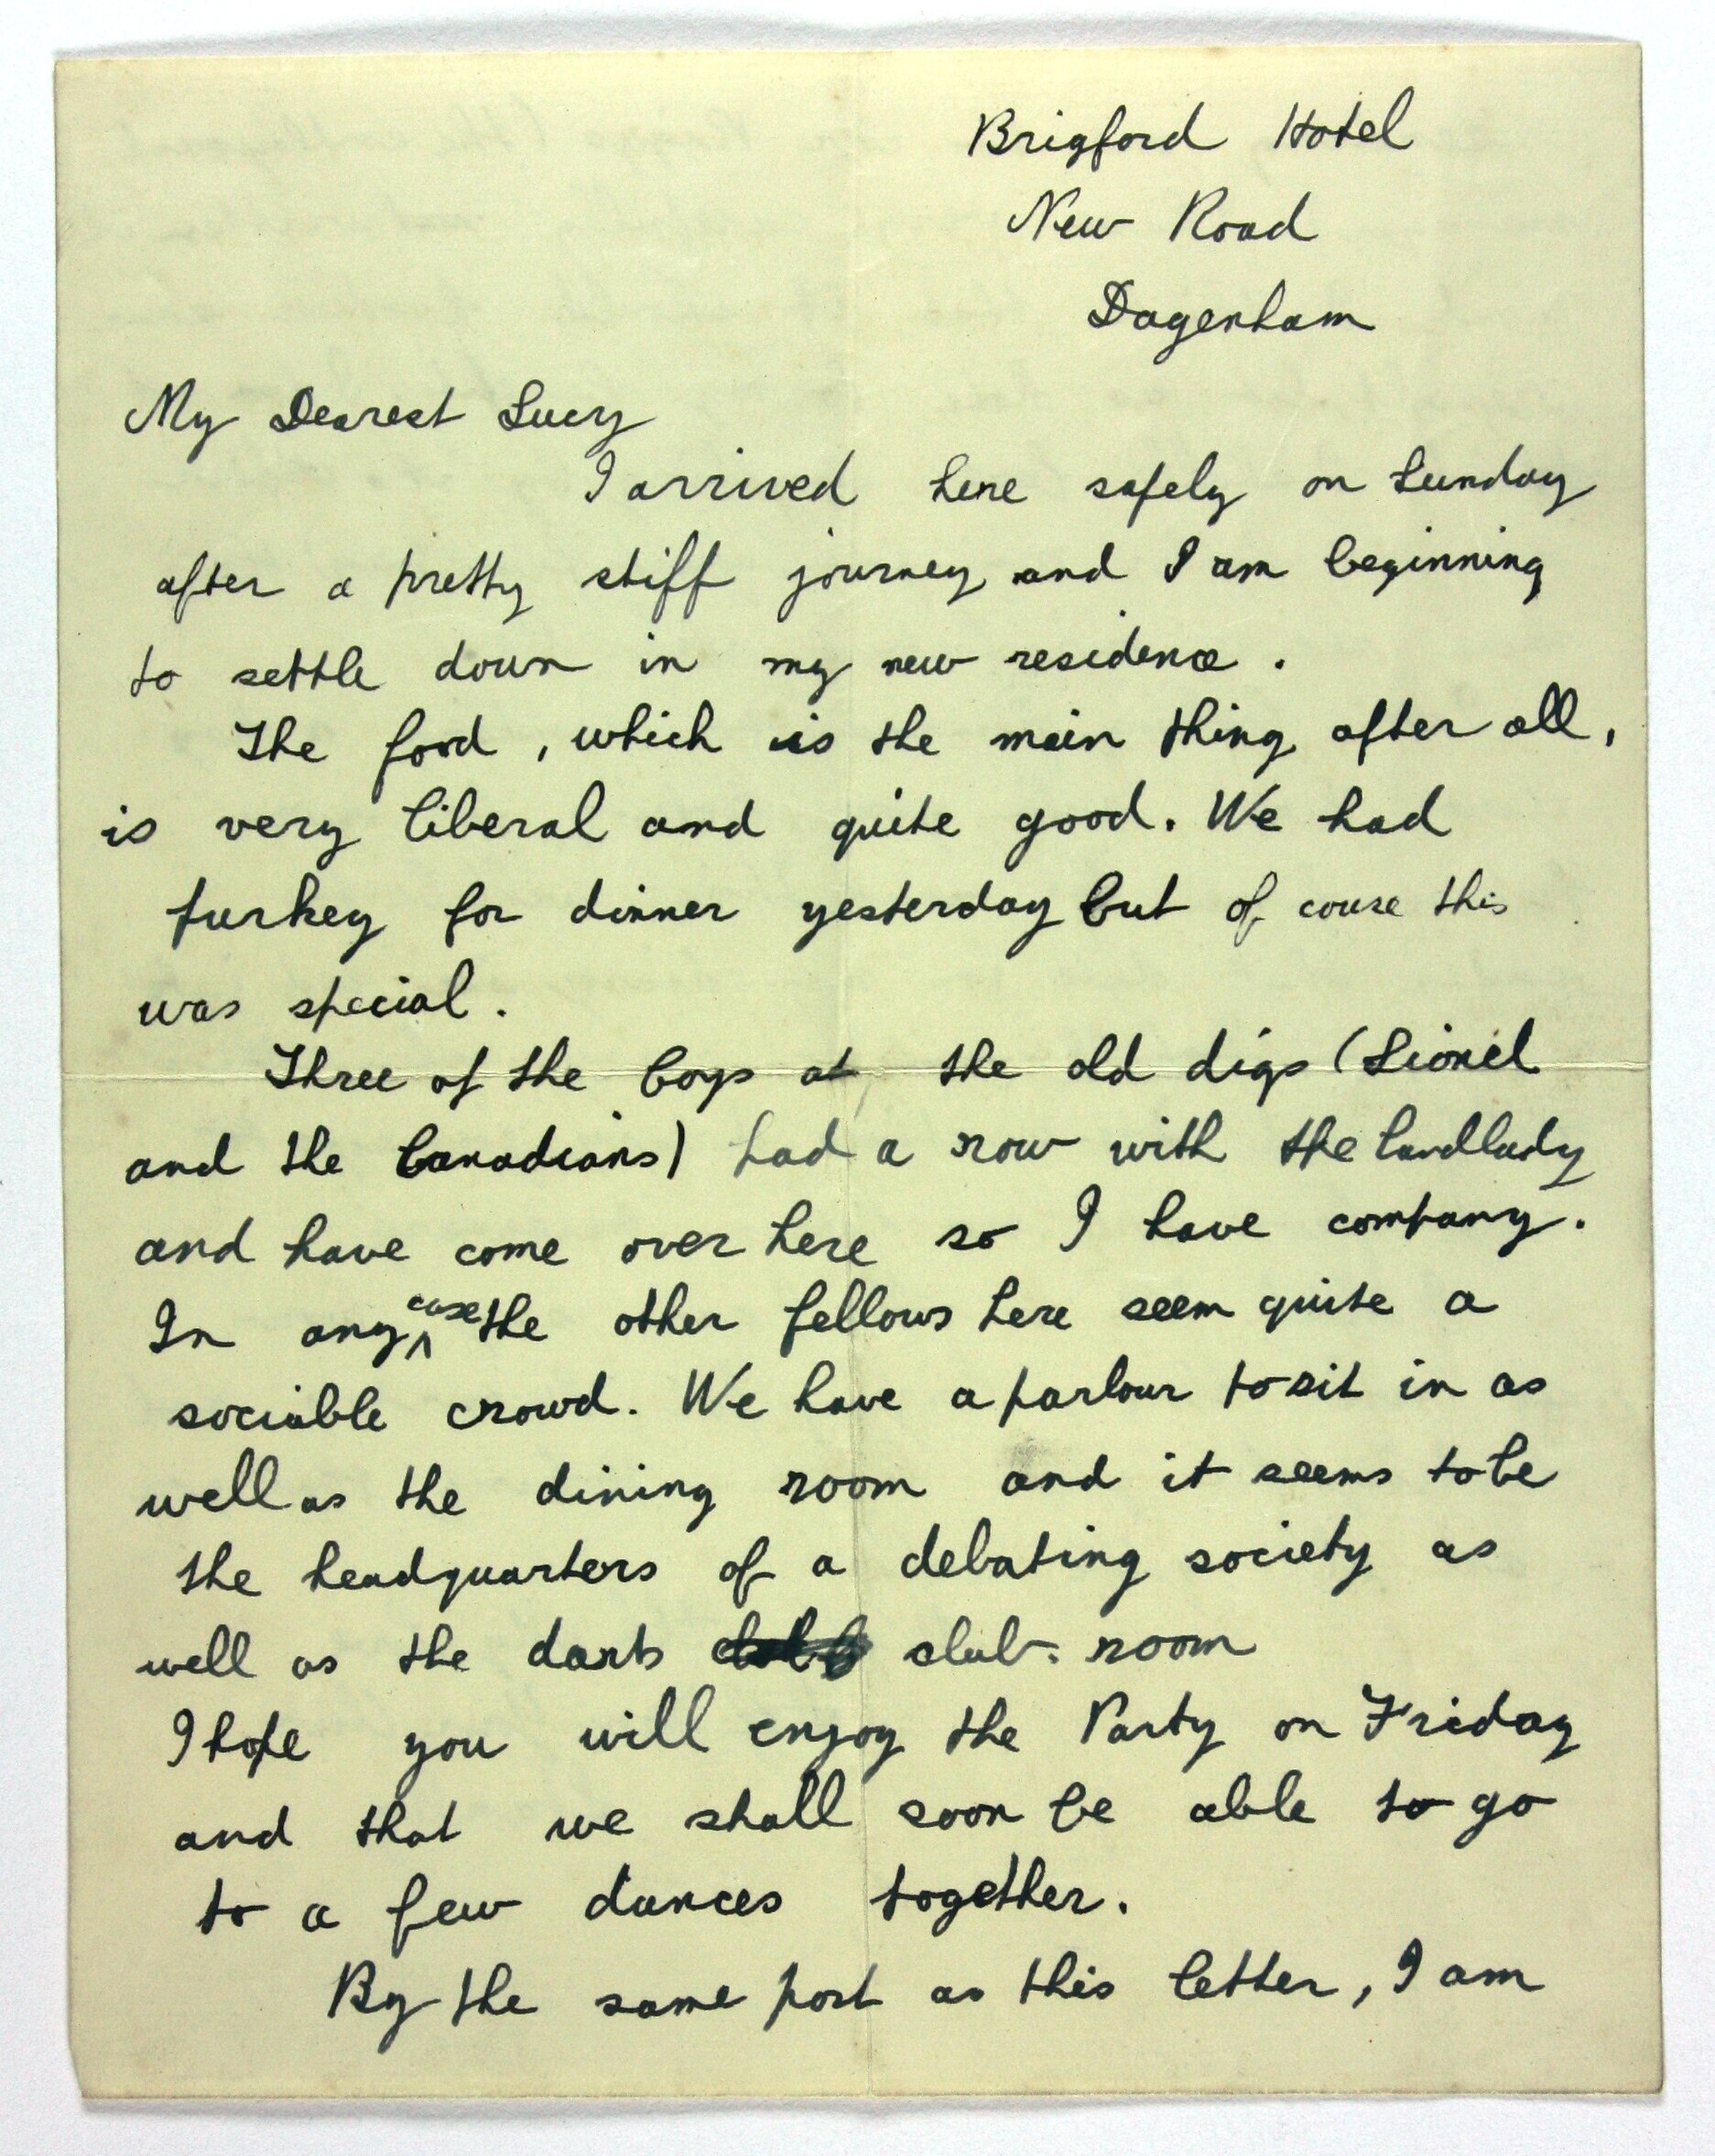 Brigford Hotel
New Road
Dagenham
My Dearest Lucy
I arrived here safely on Sunday
after a pretty stiff journey and I am beginning
to settle down in my new residence.
The food, which is the main thing after all,
is very liberal and quite good. We had
turkey for dinner yesterday but of couse this
was special.
Three of the boys at the old digs (Lionel
and the Canadians) had a row with the landlady
and have come over here so I have company.
In any case the other fellows here seem quite a
sociable crowd. We have a parlour to sit in as
well as the dining room and it seems to be
the headquarters of a debating society as
well as the darts club. room
I hope you will enjoy the Party on Friday
and that we shall soon be able to go
to a few dances together.
By the same post as this letter, I am